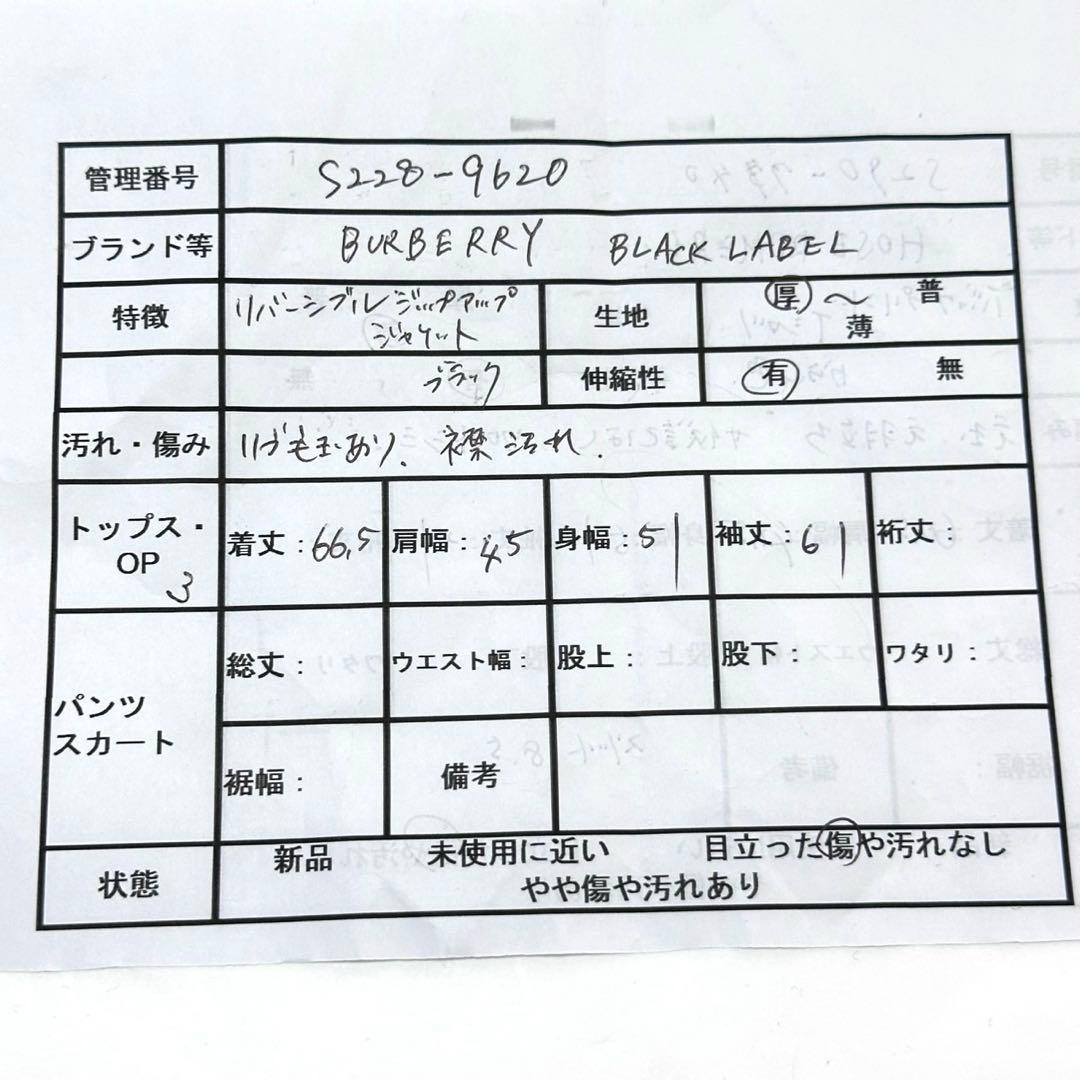 管理番号 S228-9620
ブランド等 BURBERRY BLACK LABEL
特徴 リバーシブル ジップアップ
ジャケット
生地 厚 〜 普
薄
ブラック
伸縮性 有 無
汚れ・傷み 毛玉あり、襟汚れ.
トップス・
OP
3
着丈:66,5 肩幅:45 身幅:51 袖丈:61 裄丈:
パンツ
スカート
総丈: ウエスト幅: 股上: 股下: ワタリ:
裾幅: 備考
状態 新品 未使用に近い 目立った傷や汚れなし
やや傷や汚れあり